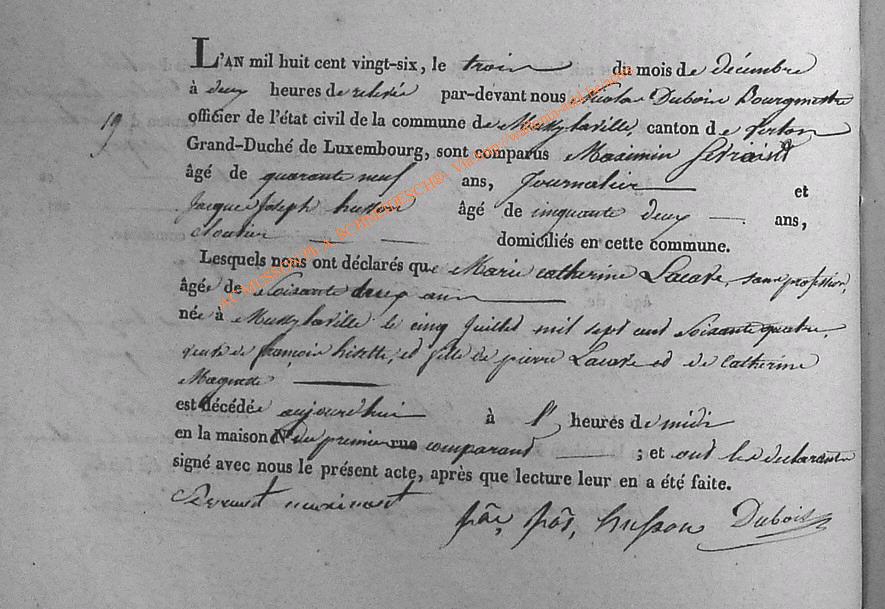 L'AN mil huit cent vingt-six, le trois du mois de décembre
à deux heures de relevée par-devant nous Nicolas Dubois Bourgmestre
officier de l'état civil de la commune de Mussylaville, canton de Virton
19
Grand-Duché de Luxembourg, sont comparus Maximin
âgé de quarante neuf ans, Journalier et
Jacque Joseph husson âgé de cinquante deux ans,
cloutier domiciliés en cette commune.
Lesquels nous ont déclarés que Marie catherine Lacave, sans profession,
âgée de Soixante deux ans
née à Mussylaville le cinq Juillet mil sept cent Soixante quatre,
veuve de françois hizette, et fille de pierre Lacave et de Catherine
est décédée aujourd'hui à l' heures de midi
en la maison N° du premier rue comparant ; et ont les declarants
signé avec nous le présent acte, après que lecture leur en a été faite.
husson Dubois